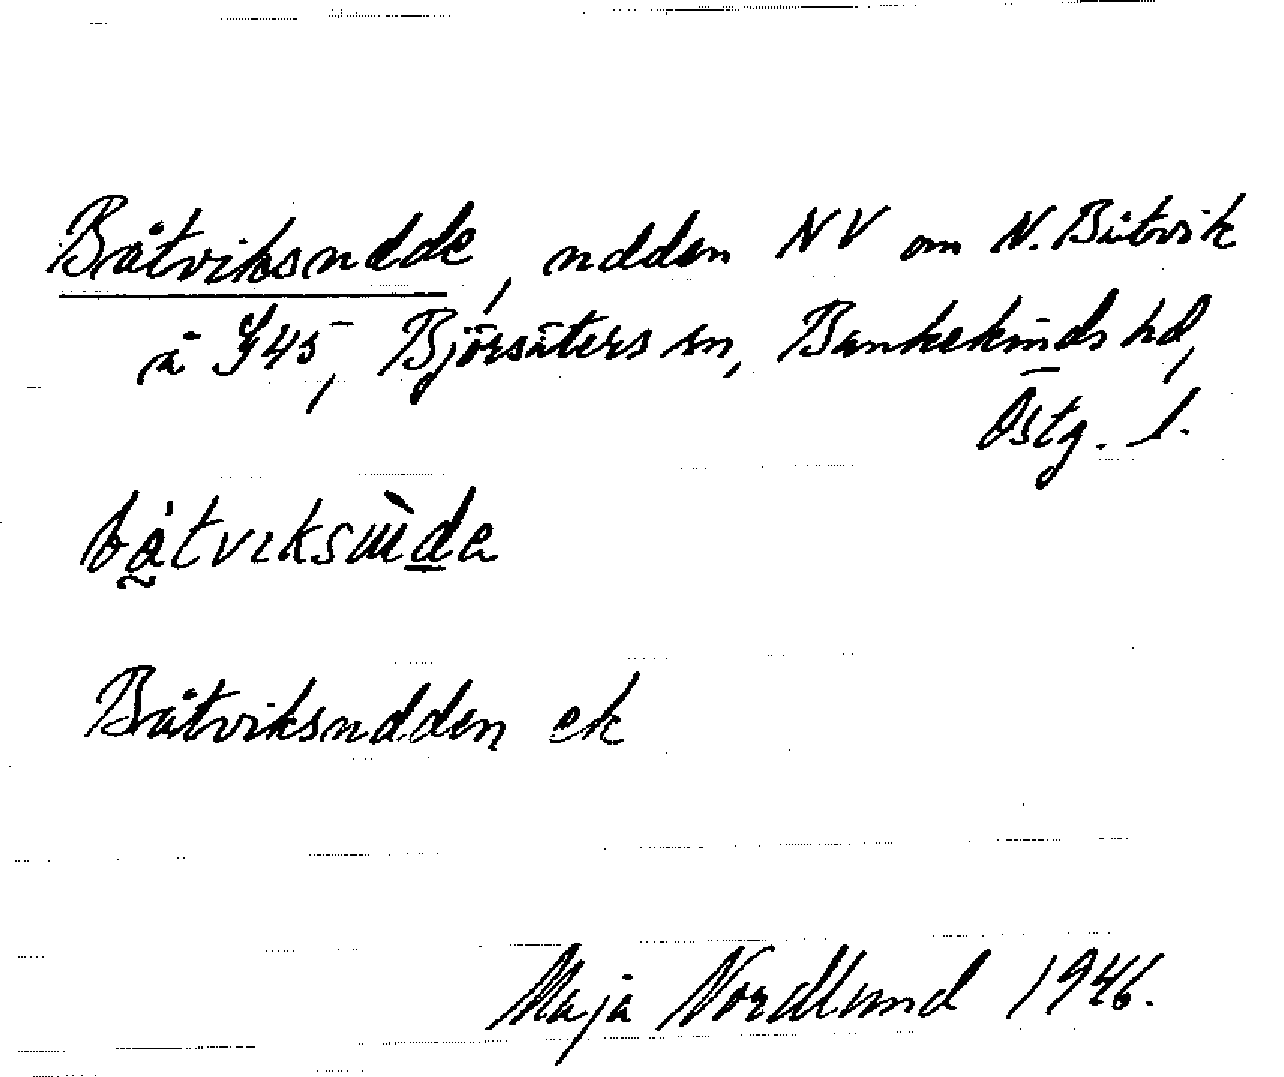 Båtviksudde, udden NV om N. Båtvik
å J45, Björsäters sn, Bankekinds hd,
Östg. l.
båtviksùda
Båtviksudden ek
Maja Nordlund 1946.